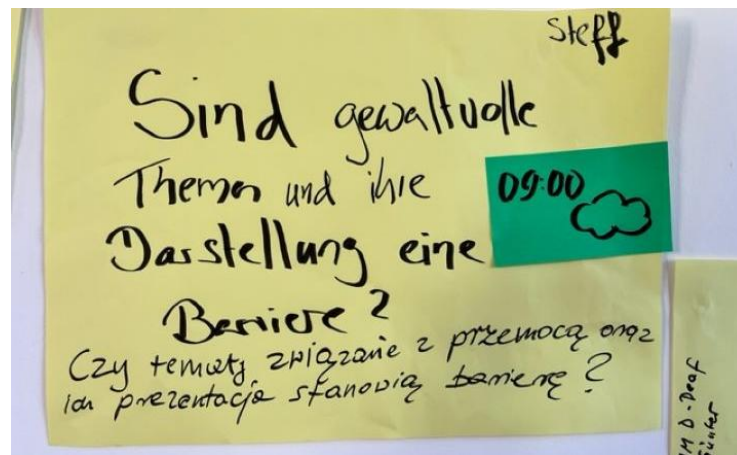 Steff
Sind gewaltvolle
Themen und ihre
09:00
Darstellung eine
Barriere?
Czy tematy związane z przemocą oraz
ich prezentacja stanowią barierę?
D-Deaf